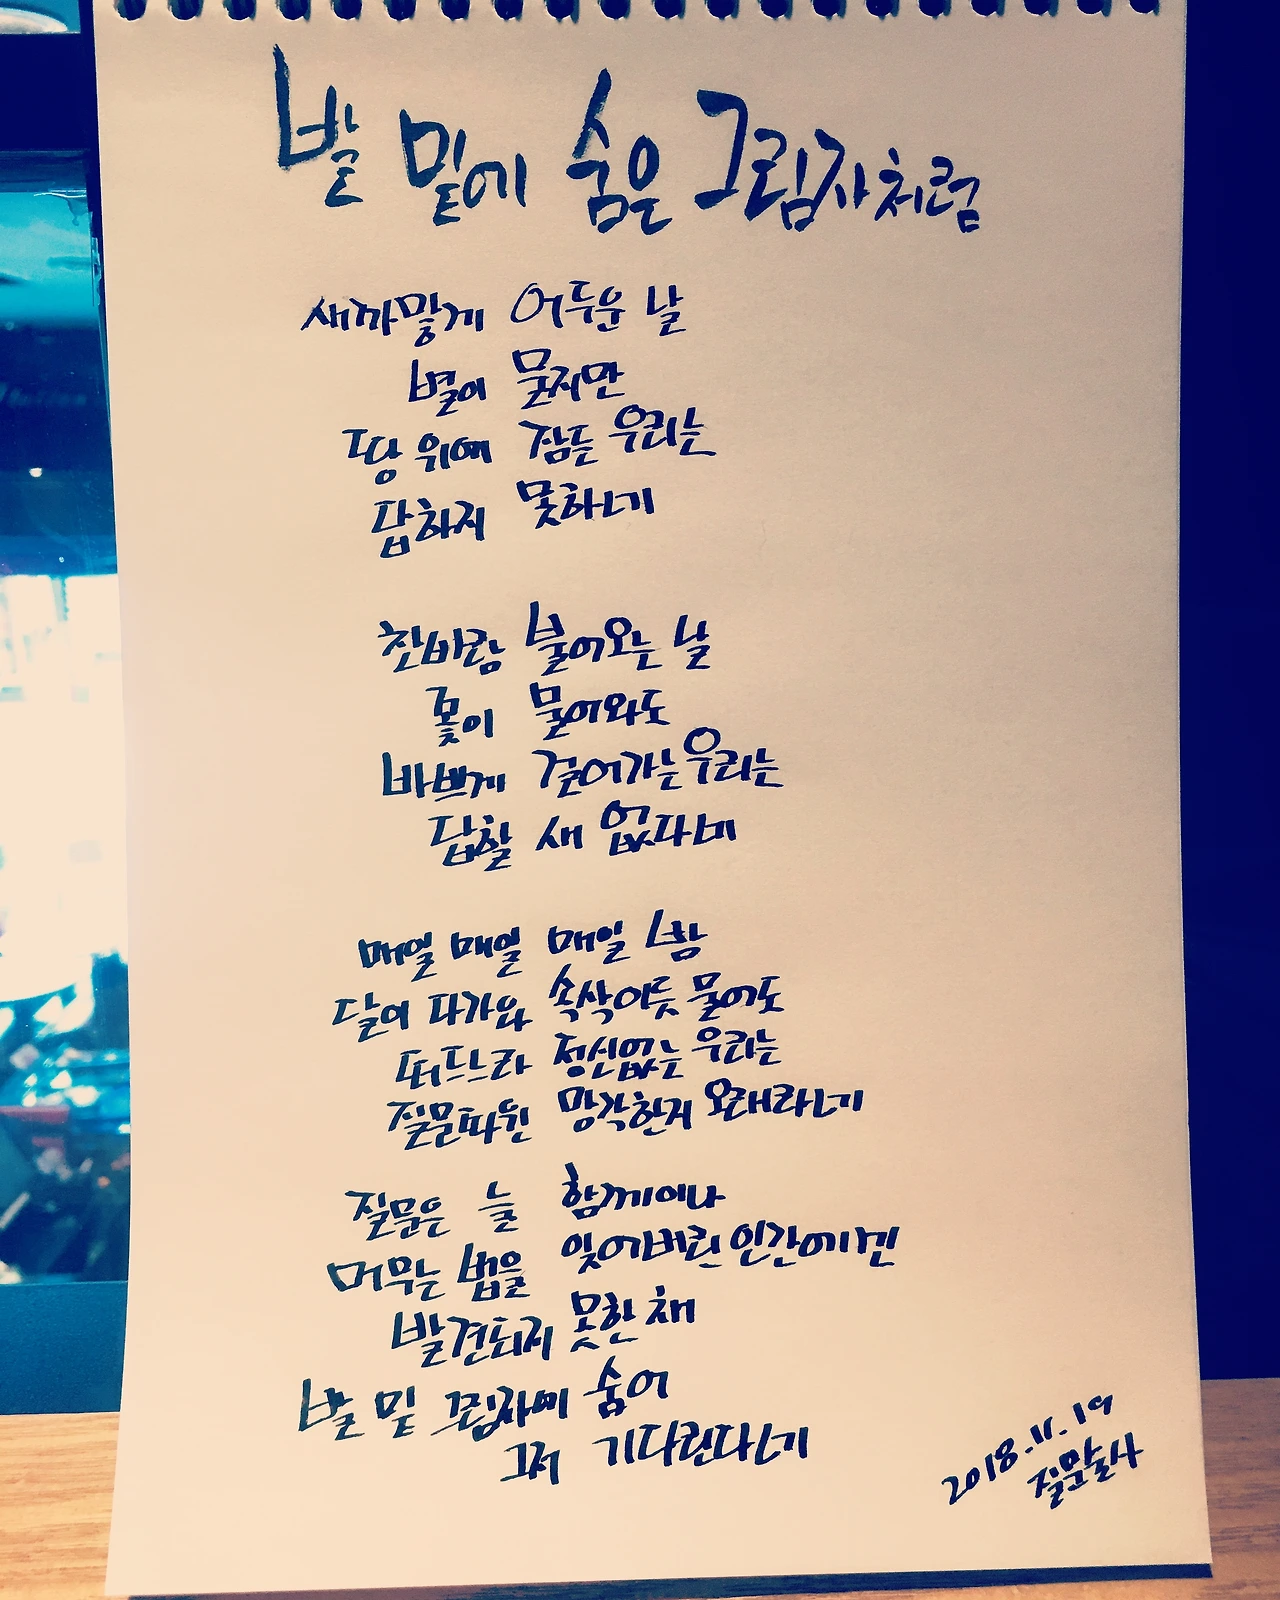 발 밑에 숨은 그림자처럼
새까맣게 어두운 날
별이 묻지만
땅 위에 잠든 우리는
답하지 못하네
찬바람 불어오는 날
꽃이 물어와도
바쁘게 걸어가는 우리는
답할 새 없다네
매일 매일 매일 밤
달이 다가와 속삭이듯 물어도
떠드느라 정신없는 우리는
질문따윈 망각한지 오래라네
질문은 늘 함께이나
머무는 법을 잊어버린 인간에겐
발견되지 못한 채
발 밑 그림자에 숨어
그저 기다린다네
2018.11.19
질문술사